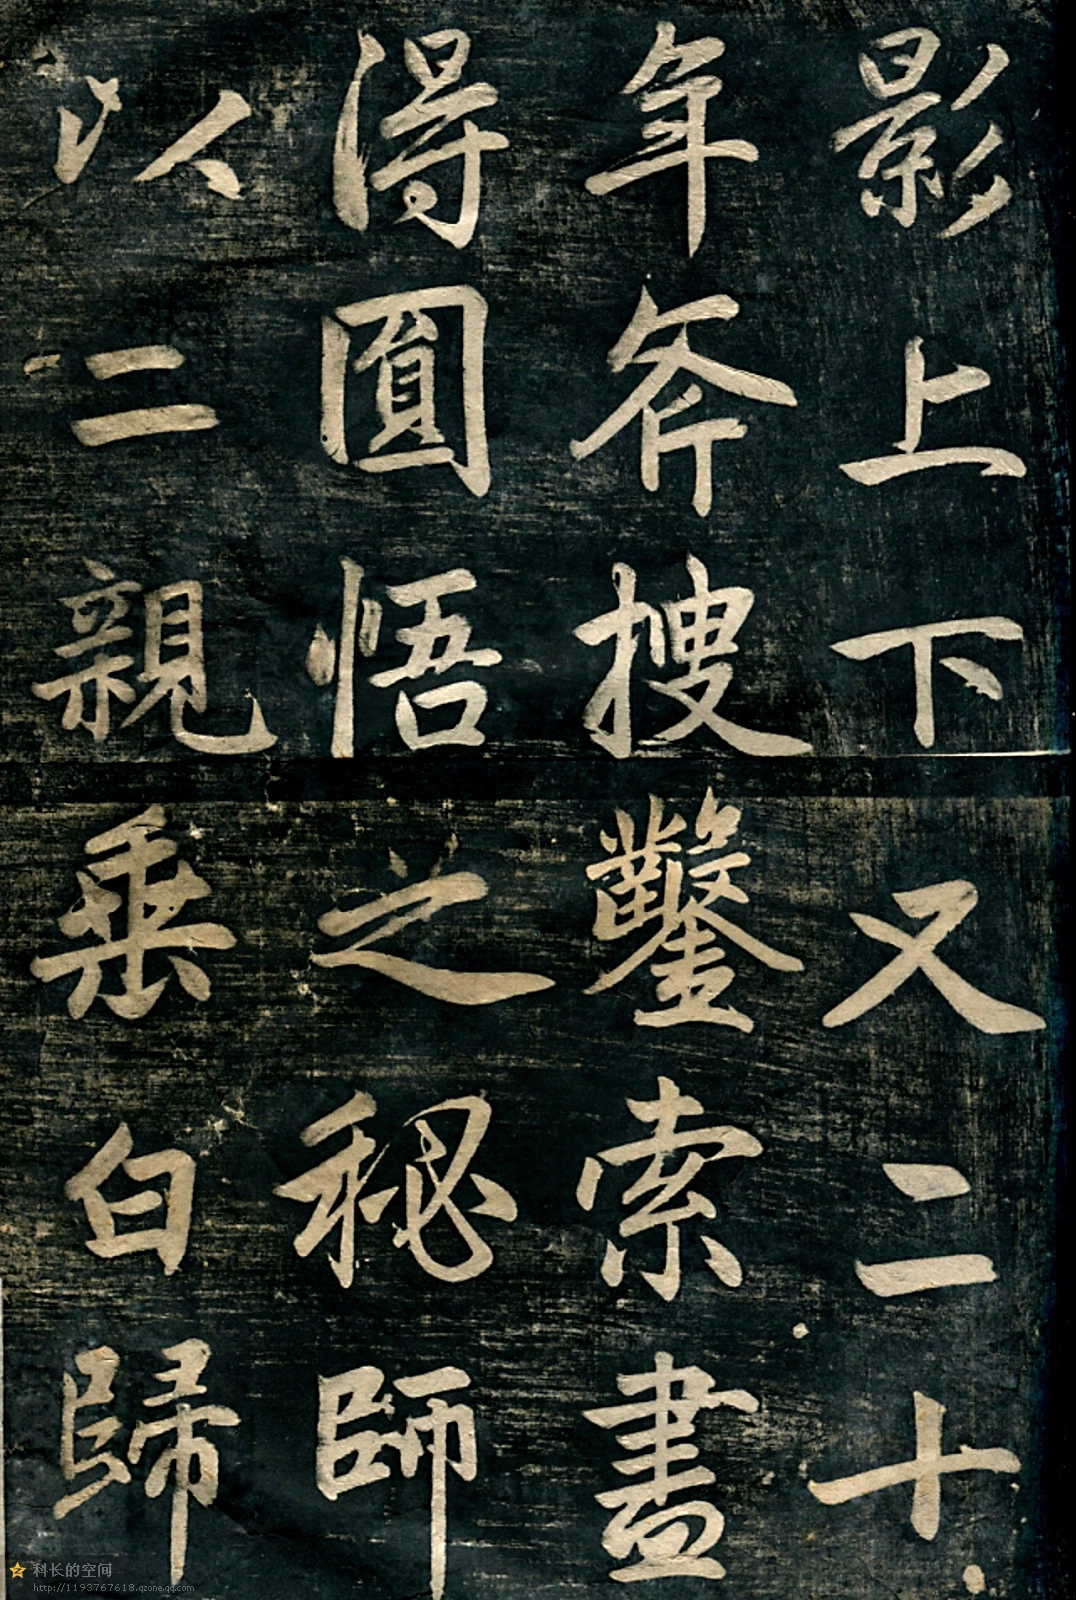 影上下又二十
年斧搜鑿索盡
得圓悟之秘師
以二親垂白歸
科长的空间
http://1193767618.qzone.qq.com